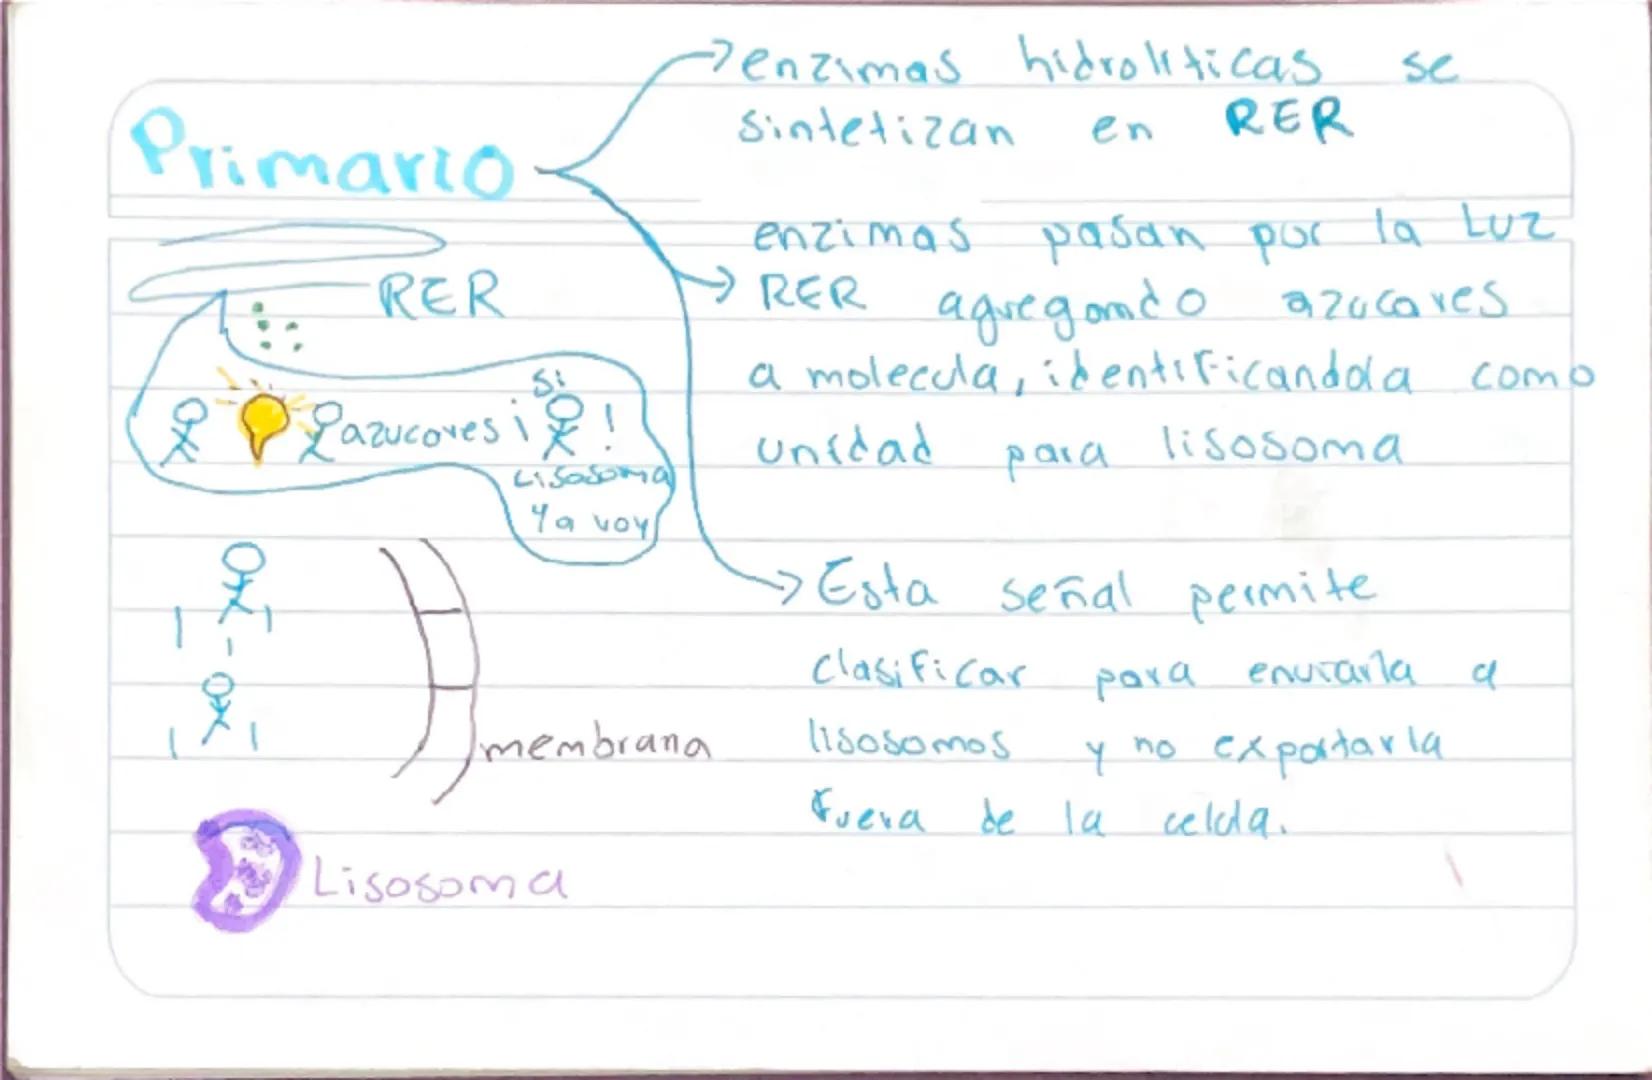 Primario
enzimas hidroliticas se
sintetizan en RER
enzimas pasan por la Luz
RER agregando azucares
a molecula, identificandola como
unidad para lisosoma
Esta señal permite
clasificar para enviarla a
lisosomas y no exportarla
fuera de la celda.
RER
azucares
¡Si!
Lisosoma
Ya voy
membrana
Lisosoma